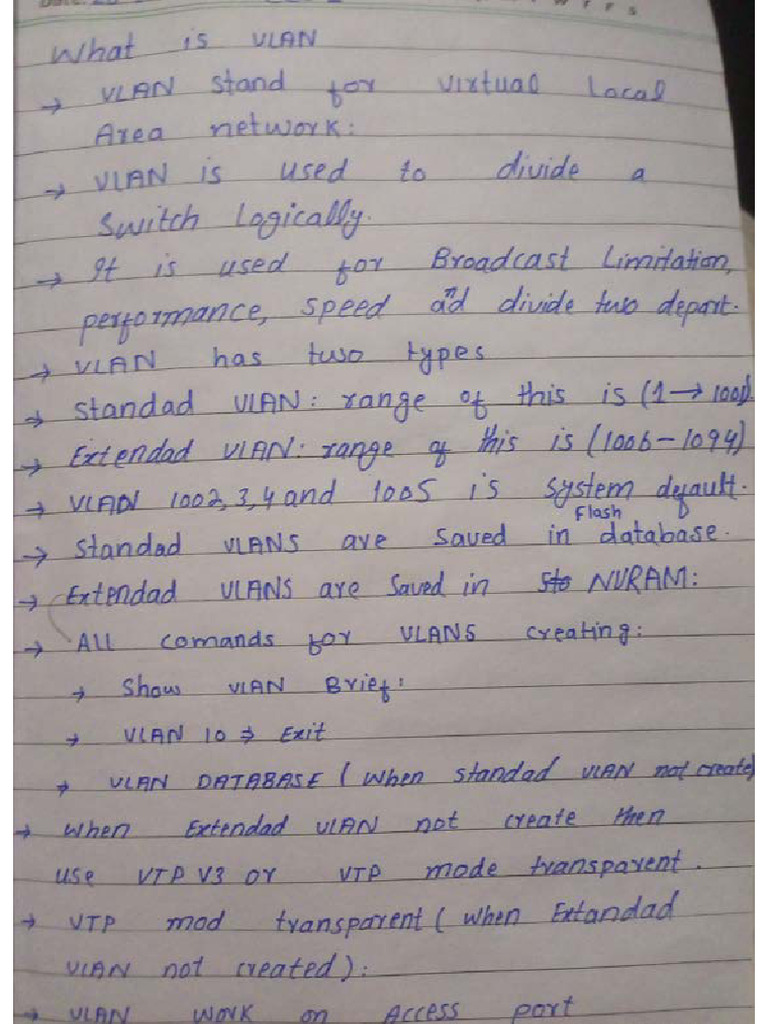 What is VLAN
→ VLAN stand for virtual Local
Area network:
→ VLAN is used to divide a
Switch Logically.
→ It is used for Broadcast Limitation,
performance, speed and divide two depart.
→ VLAN has two types
→ standad VLAN: range of this is (1→1001)
→ Extendad VLAN: range of this is (1006-1094)
→ VLAN 1002,3,4 and 1005 is system default.
Flash
→ standad VLANS are saved in database.
→ Extendad VLANS are saved in NVRAM:
→ All comands for VLANS creating:
→ Show VLAN Brief:
→ VLAN 10 ⇒ Exit
→ VLAN DATABASE (when standad VLAN not create)
→ when Extendad VLAN not create then
use VTP V3 or VTP mode transparent.
→ VTP mod transparent (when Extandad
VLAN not created):
→ VLAN WORK on Access port